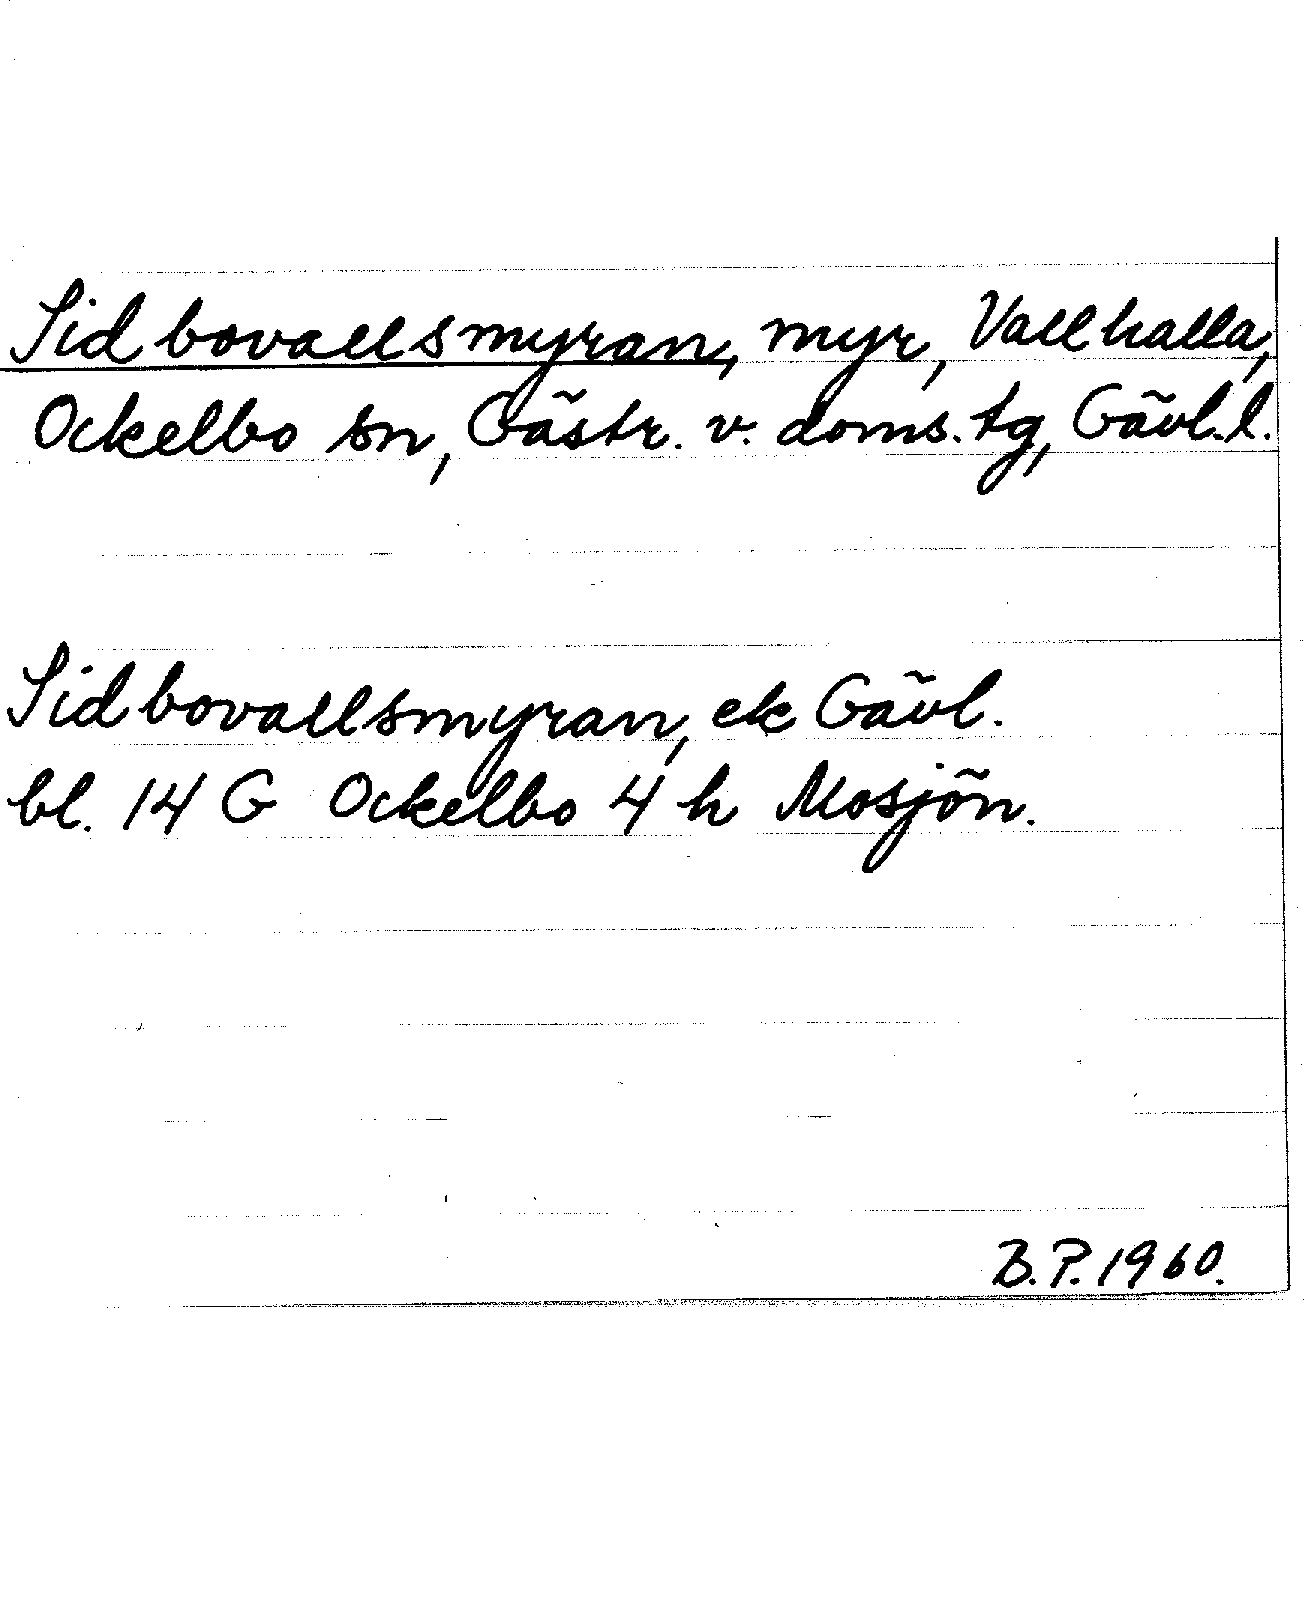 Sidbovallsmyran, myr, Vallhalla,
Ockelbo sn, Gästr. v. doms. tg, Gävl. l.
Sidbovallsmyran, ek Gävl.
bl. 14 G Ockelbo 4 h Mosjön.
B. P. 1960.